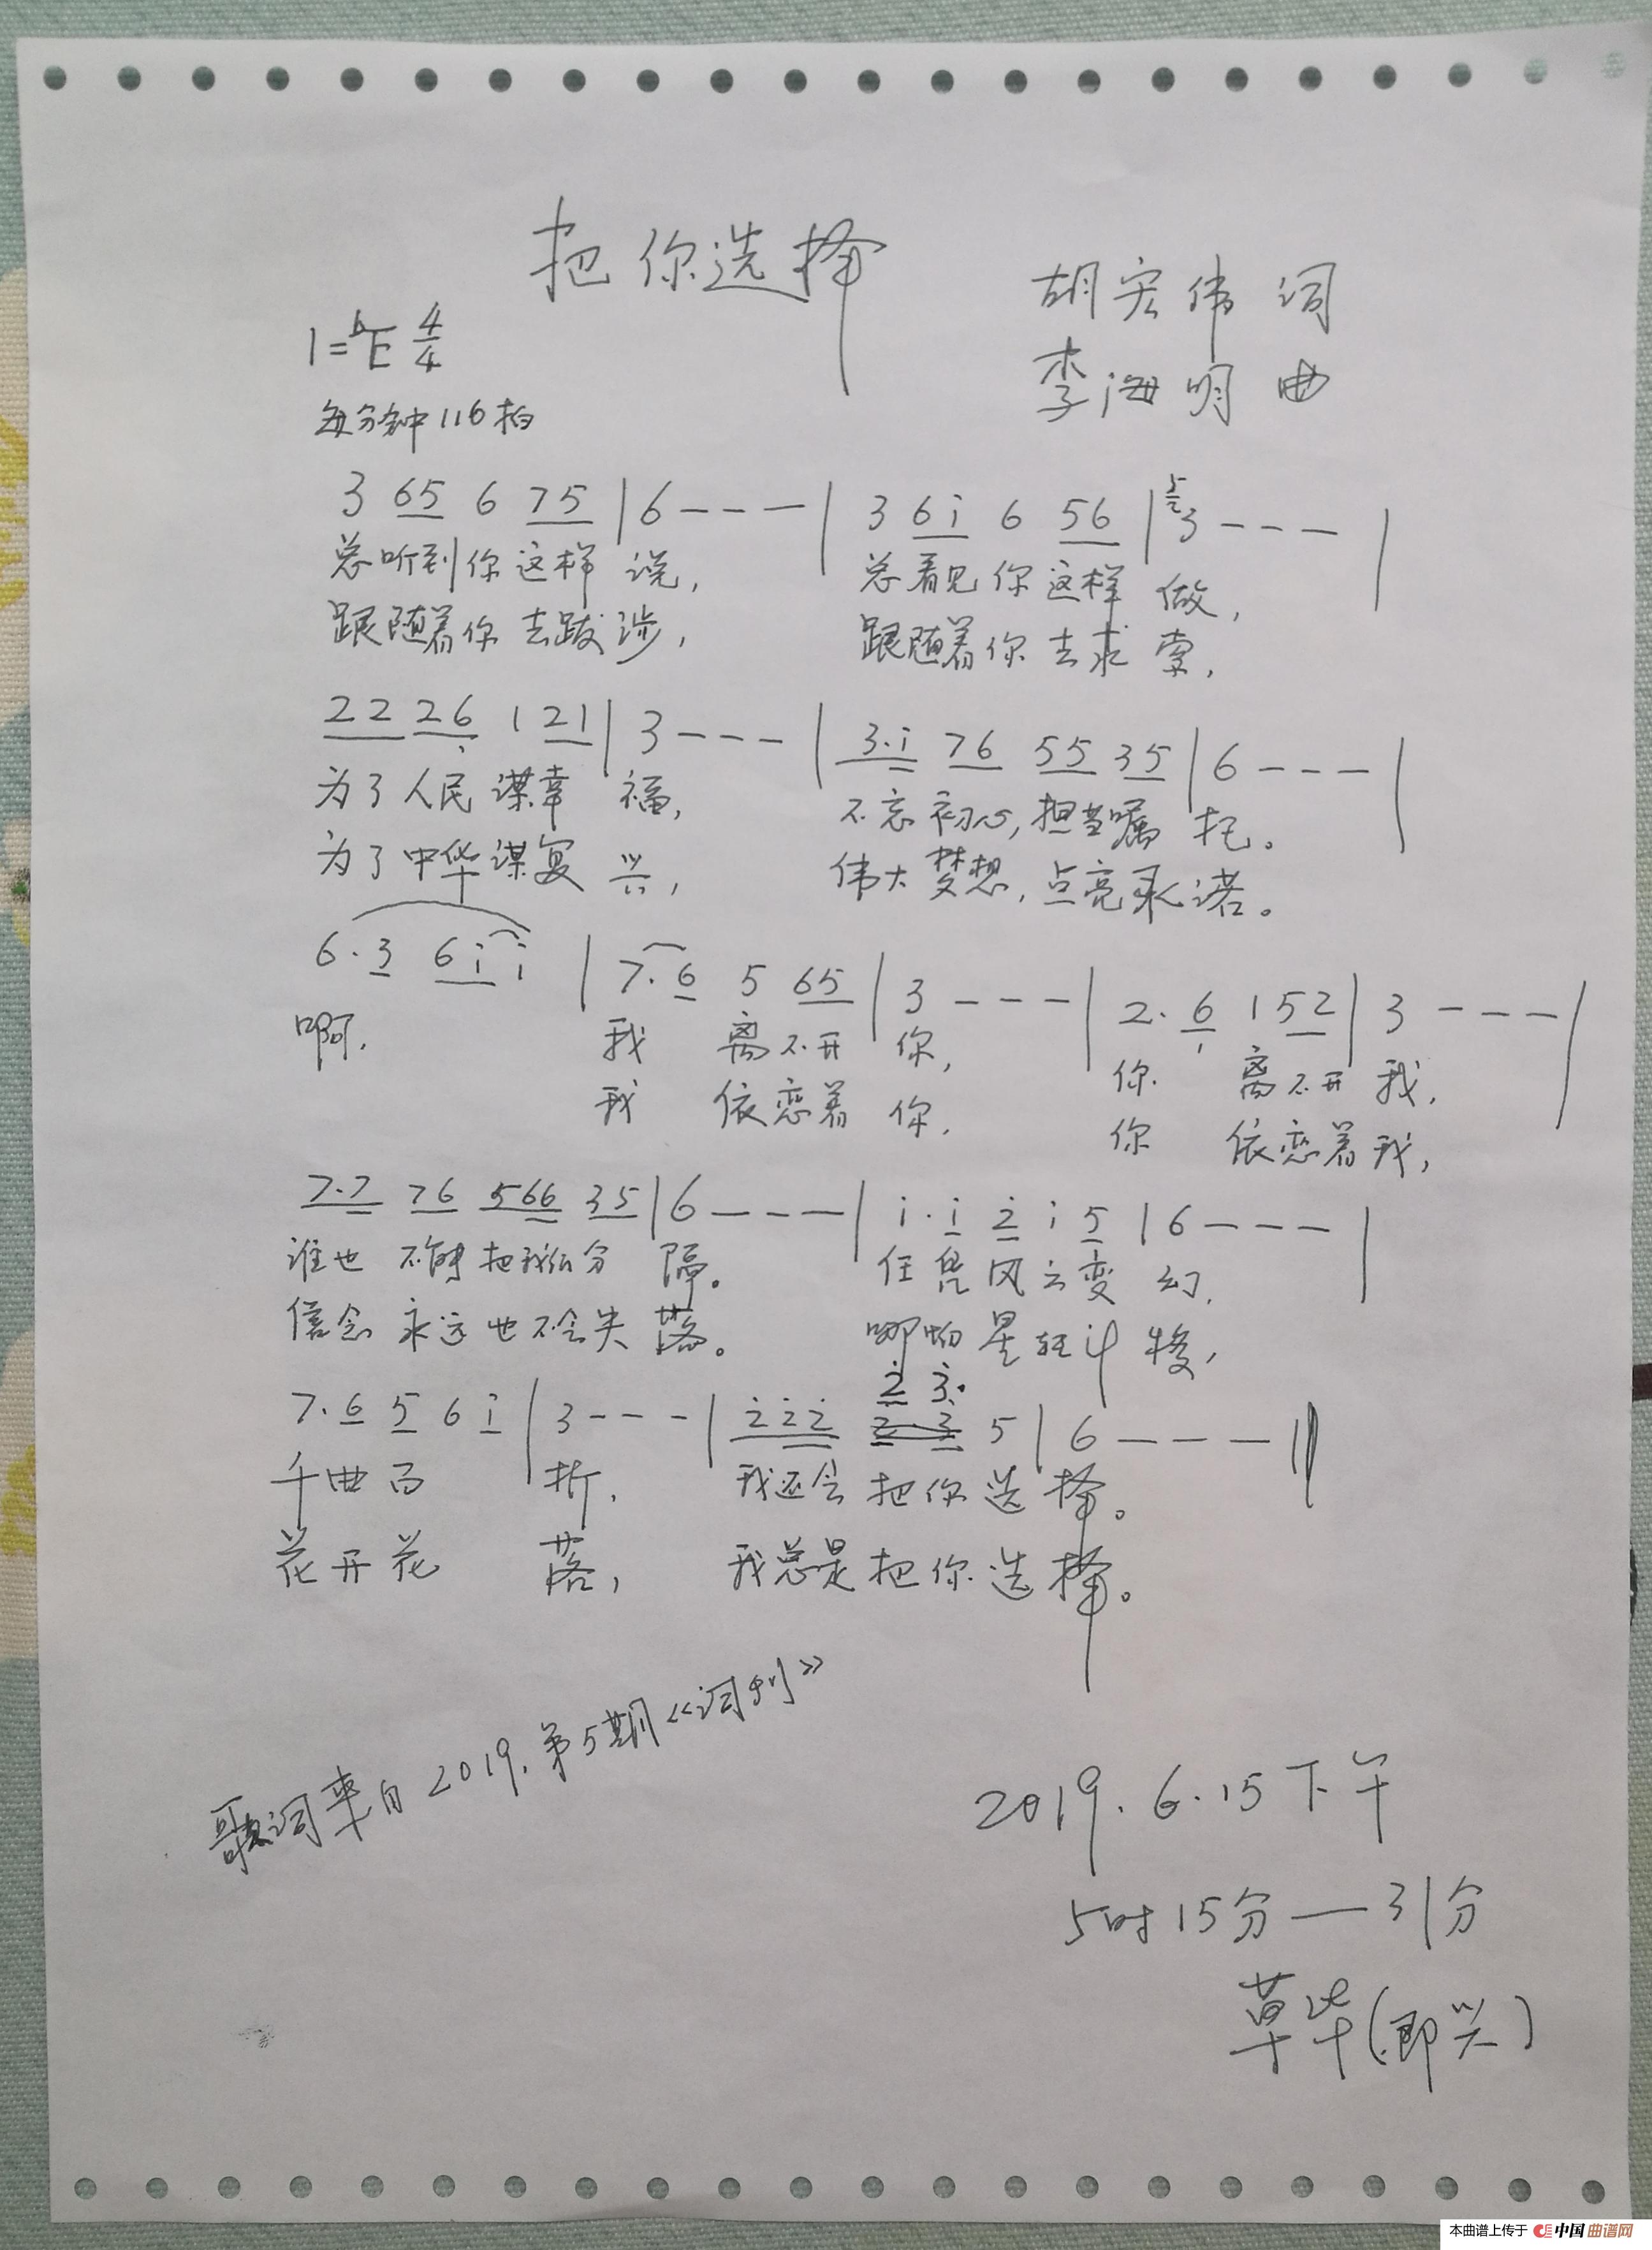 把你选择
胡宏伟 词
1=♭E 4/4
李海明 曲
每分钟116拍
3 65 6 75 | 6 - - - | 3 6i 6 56 | 3 - - - |
总听到你这样 说， 总看见你这样 做，
跟随着你去跋涉， 跟随着你去求索，
22 26 1 21 | 3 - - - | 3.i 76 55 35 | 6 - - - |
为了人民谋幸 福， 不忘初心，担当嘱 托。
为了中华谋复 兴， 伟大梦想，点亮承诺。
6.3 6i i | 7.6 5 65 | 3 - - - | 2.6 1 52 | 3 - - - |
啊， 我 离不开 你， 你 离不开 我，
我 依恋着 你， 你 依恋着我，
7.7 76 566 35 | 6 - - - | i.i 2 i 5 | 6 - - - |
谁也 不能 把我们分 隔。 任凭风云变 幻，
信念 永远 也不会失 落。 哪怕星转斗 移，
2 3.
7.6 5 6 i | 3 - - - | 2 2 2 5 | 6 - - - ‖
千曲百 折， 我还会 把你选择。
花开花 落， 我总是把你选择。
歌词来自2019.第5期《词刊》
2019.6.15下午
5时15分—31分
草毕(即兴)
本曲谱上传于 中国曲谱网